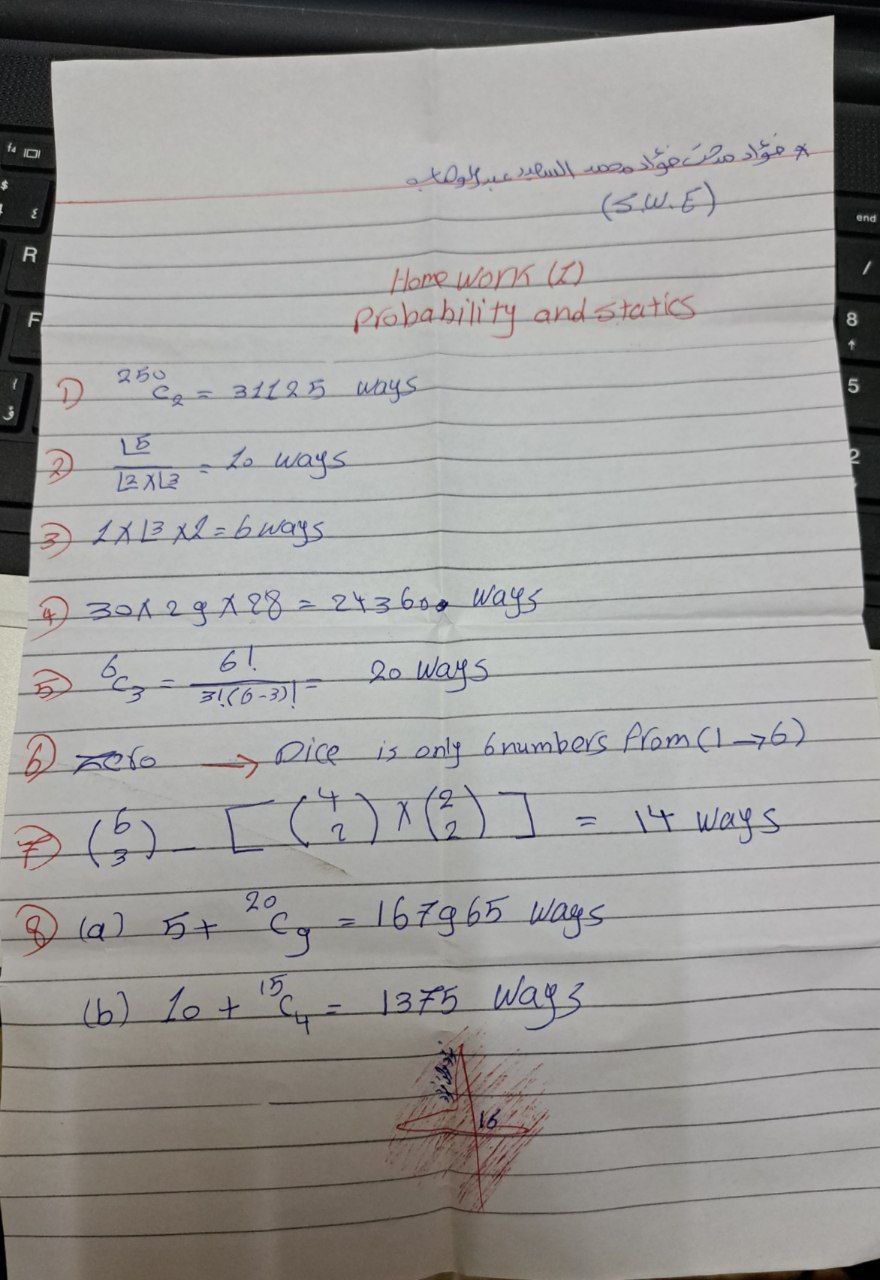 * فؤاد مدحت فؤاد محمد السعيد عبد الوهاب
(S.W.E)
Home work (1)
Probability and statics
1) ²⁵⁰C₂ = 31125 ways
2) |5 / |2 x |3 = 10 ways
3) 1 x |3 x 1 = 6 ways
4) 30 x 29 x 28 = 24360 ways
5) ⁶C₃ = 6! / 3!(6-3)! = 20 ways
6) zero → Dice is only 6 numbers from (1 → 6)
7) (6 3) - [ (4 2) x (2 2) ] = 14 ways
8) (a) 5 + ²⁰C₉ = 167965 ways
(b) 10 + ¹⁵C₄ = 1375 ways
16